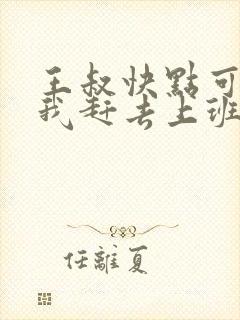 王叔快點可
我赶去上班
任離夏